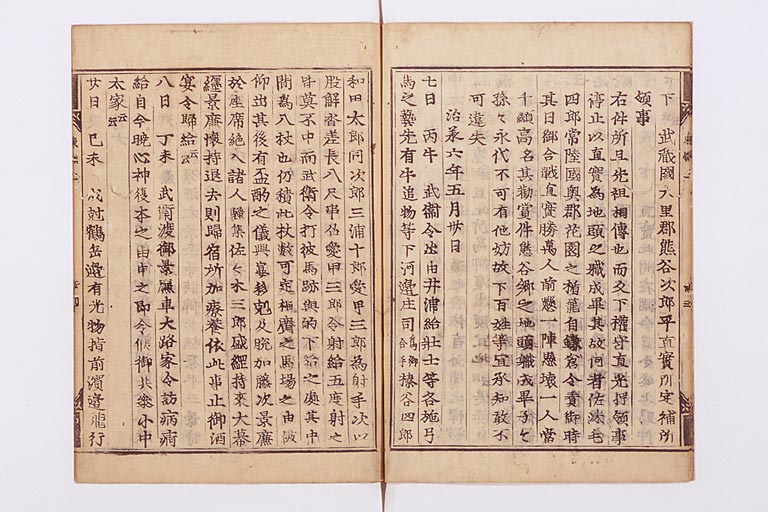 下下 武蔵國大里郡熊谷次郎平直實所定補所
領事
右件所且先祖相傳也而久下權守直光押領事
停止以直實為地頭之職成畢其故何者佐汰毛
四郎常陸國奥郡花園之楯籠自鎌倉令責御時
其日御合戰直實勝萬人前懸一陣懸壊一人當
千顯高名其勸賞件熊谷郷之地頭職成畢子々
孫々永代不可有他妨故下百姓等宜承知敢不
可違失
治承六年五月卅日
七日 丙午 武衛令出由井浦給壯士等各施弓
馬之藝先有牛追物等下河邊庄司 榛谷四郎
和田太郎同次郎三浦十郎愛甲三郎為射手次以
股解沓差長八尺串仰愛甲三郎令射給五度射之
皆莫不中而武衛令打彼馬跡與的下給之處其中
間為八杖也仍積此杖數可定相廣之馬場之由被
仰出其後有盃酌之儀興宴移剋及脱加藤次景廉
於座席絶入諸人騒集佐々木三郎盛綱持來大幕
纒景廉懐持退去則歸宿所加療養依此事止御酒
宴令歸給云云
八日 丁未 武衛渡御景廉車大路家令訪病痾
給自今曉心神復本之由申之即令候御共參小中
太家云云
廿日 己未 戌剋鶴岳邊有光物指前濱邊飛行